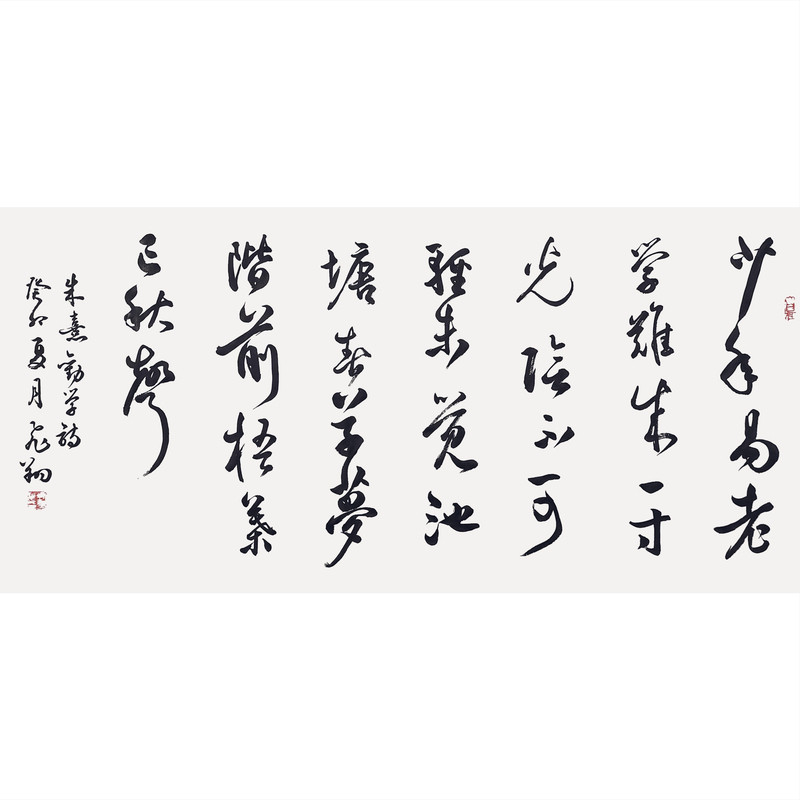 少年易老
学難成一寸
光陰不可
輕未覺池
塘春草夢
階前梧葉
已秋聲
朱熹勸学詩
癸卯夏月飛翔